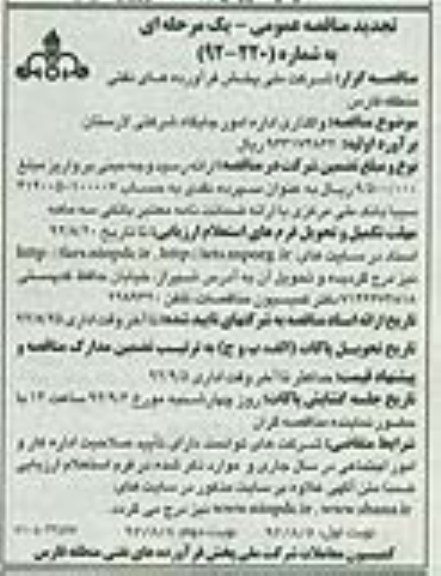 تجدید مناقصه عمومی - یک مرحله ای
به شماره (۲۲۰-۹۲)
مناقصه گزار: شرکت ملی پخش فرآورده های نفتی
منطقه فارس
موضوع مناقصه: واگذاری اداره امور جایگاه شرکتی لارستان
برآورد اولیه: ریال
نوع و مبلغ تضمین شرکت در مناقصه: ارائه رسید وجه مبنی بر واریز مبلغ
ریال به عنوان سپرده نقدی به حساب
سیبا بانک ملی مرکزی یا ارائه ضمانت نامه معتبر بانکی سه ماهه
مهلت تکمیل و تحویل فرم های استعلام ارزیابی: تا تاریخ ۹۲/۸/۲۰
اسناد در سایت های http://iets.mporg.ir , http://fars.niopdc.ir
نیز درج گردیده و تحویل آن به آدرس شیراز، خیابان حافظ
دفتر کمیسیون مناقصات، تلفن
تاریخ ارائه اسناد مناقصه به شرکتهای تایید شده: تا آخر وقت اداری ۹۲/۸/۲۵
تاریخ تحویل پاکات (الف، ب و ج) به ترتیب تضمین مدارک مناقصه و
پیشنهاد قیمت: حداکثر تا آخر وقت اداری ۹۲/۹/۵
تاریخ جلسه گشایش پاکات: روز چهارشنبه مورخ ۹۲/۹/۶ ساعت ۱۲ با
حضور نماینده مناقصه گران
شرایط متقاضی: شرکت های توانمند دارای تأیید صلاحیت اداره کار و
امور اجتماعی در سال جاری و موارد ذکر شده در فرم استعلام ارزیابی
ضمنا متن آگهی علاوه بر سایت مذکور در سایت های
www.niopdc.ir , www.shana.ir نیز درج می گردد.
نوبت اول: نوبت دوم:
کمیسیون معاملات شرکت ملی پخش فرآورده های نفتی منطقه فارس